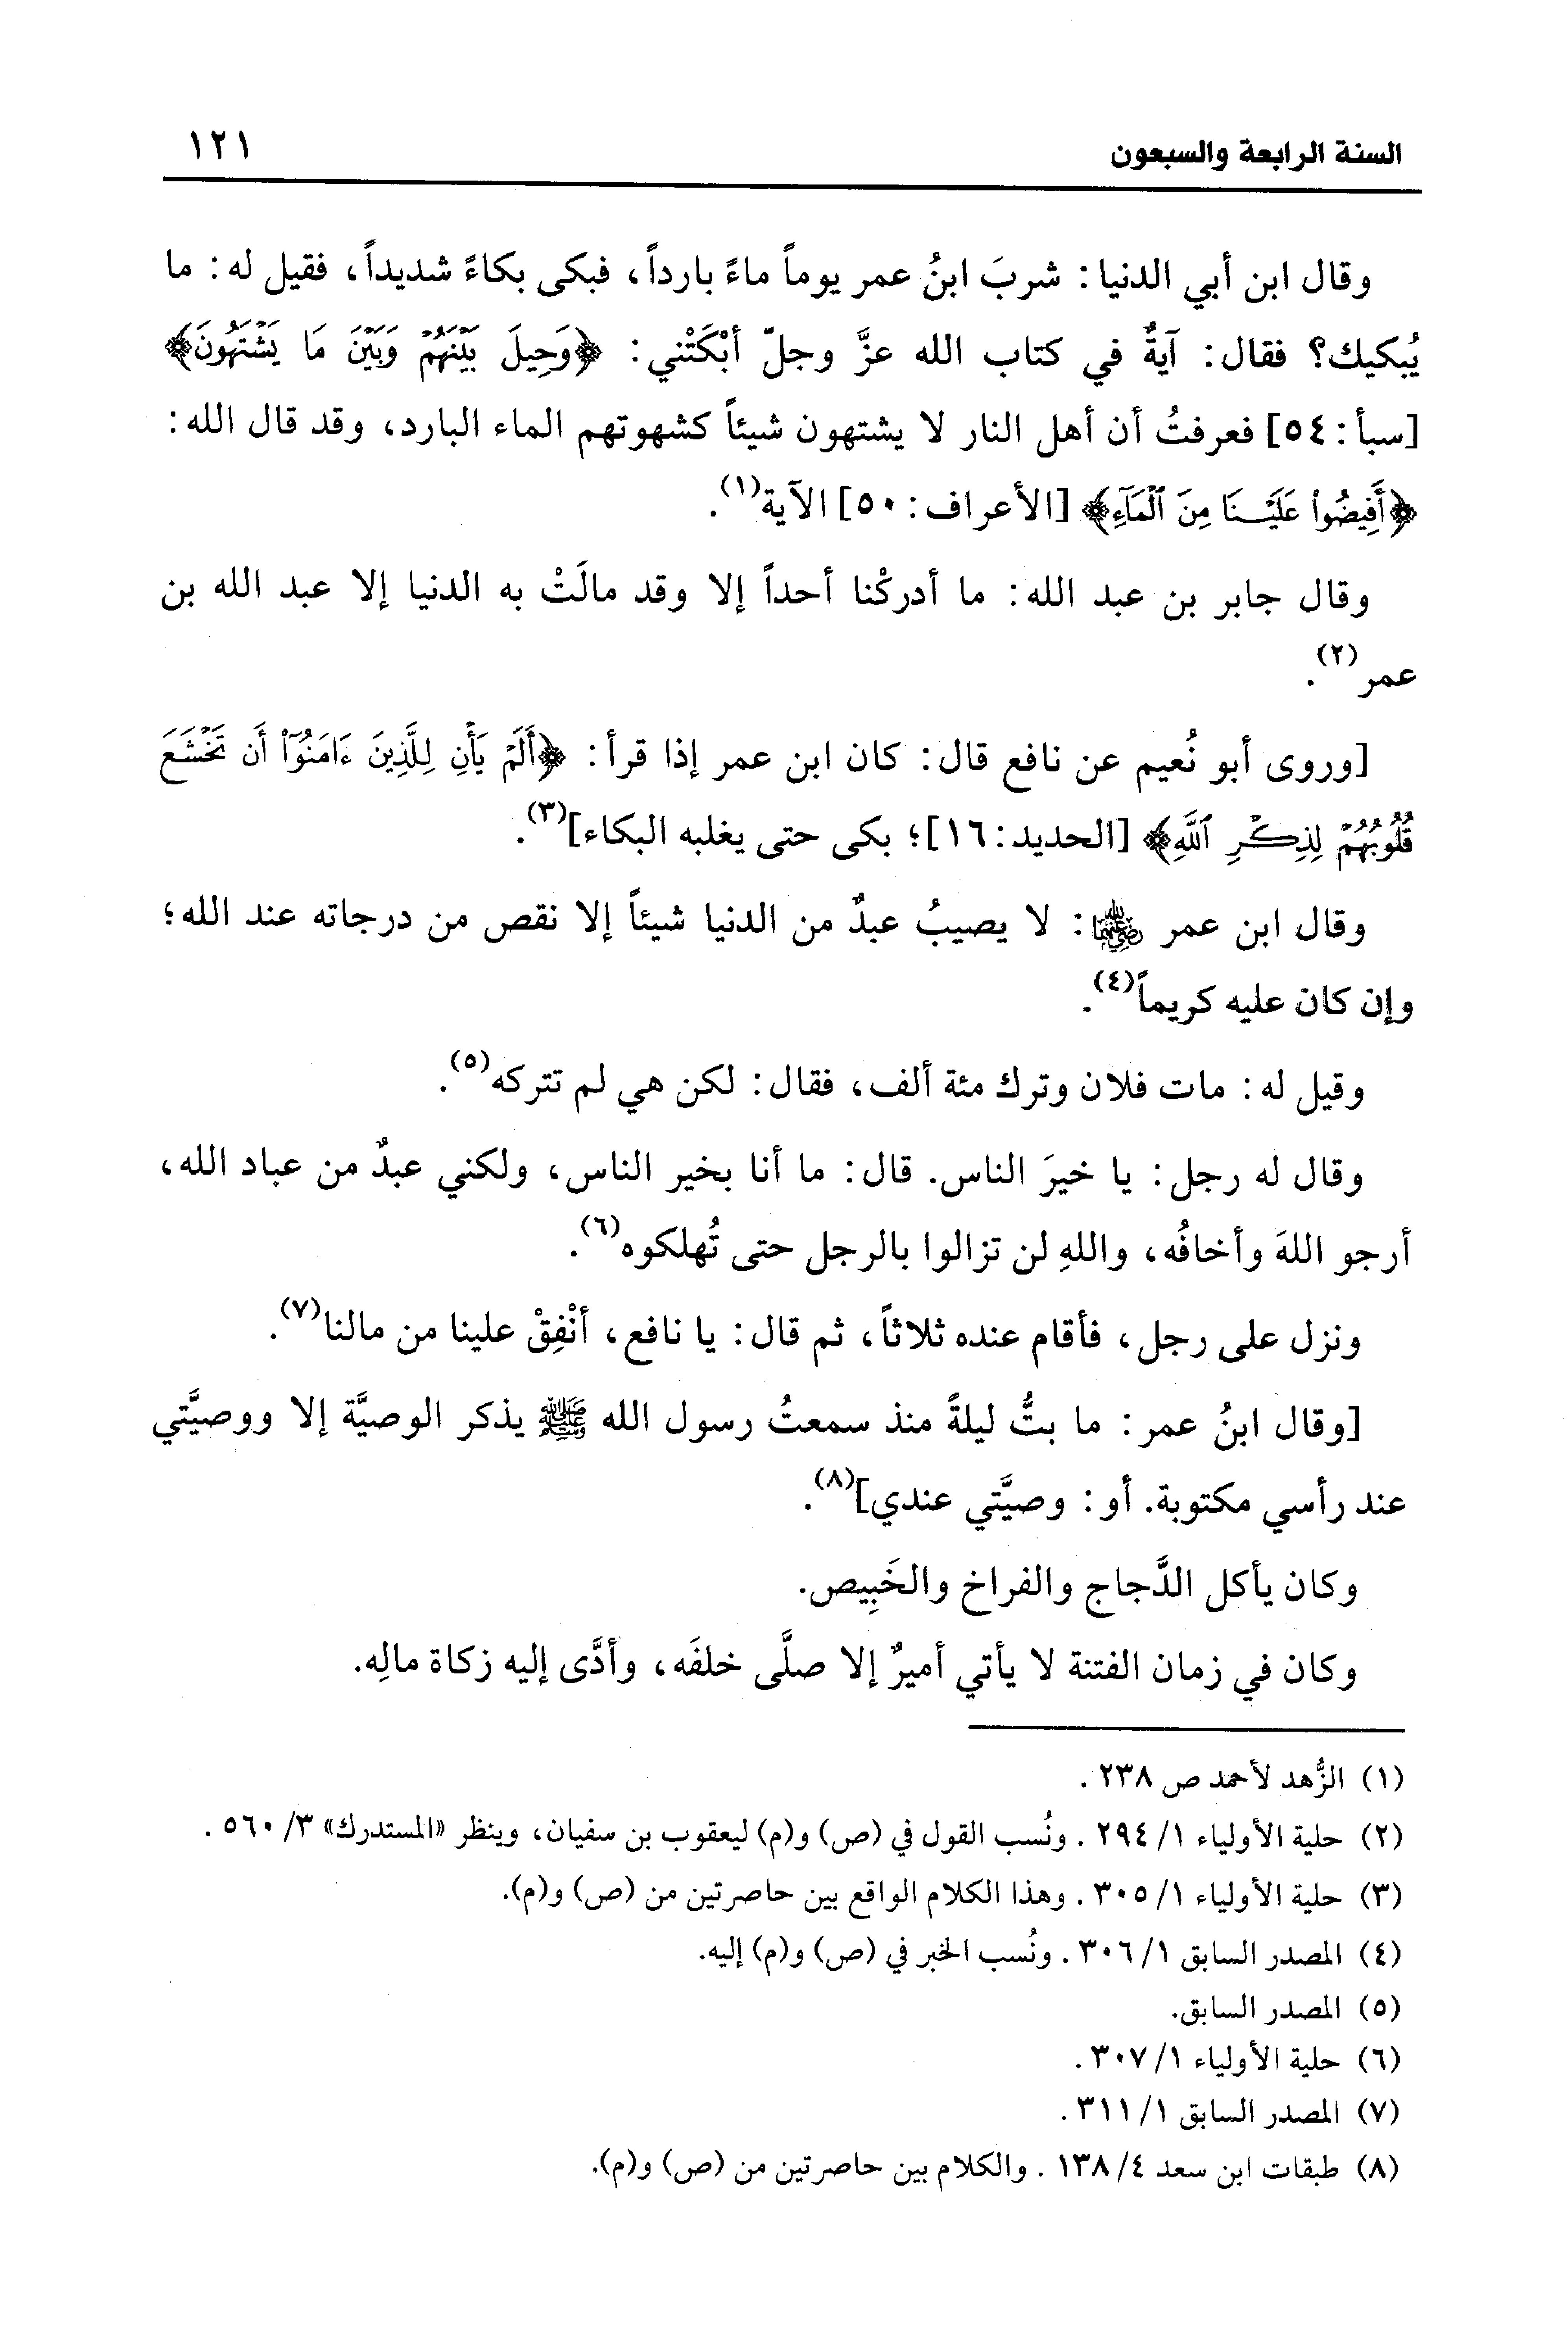 السنة الرابعة والسبعون ١٢١
وقال ابن أبي الدنيا: شربَ ابنُ عمر يوماً ماءً بارداً، فبكى بكاءً شديداً، فقيل له: ما
يُبكيك؟ فقال: آيةٌ في كتاب الله عزَّ وجلّ أبْكَتْني: ﴿وَحِيلَ بَيْنَهُمْ وَبَيْنَ مَا يَشْتَهُونَ﴾
[سبأ: ٥٤] فعرفتُ أن أهل النار لا يشتهون شيئاً كشهوتهم الماء البارد، وقد قال الله:
﴿أَفِيضُوا۟ عَلَيْنَا مِنَ ٱلْمَآءِ﴾ [الأعراف: ٥٠] الآية(١).
وقال جابر بن عبد الله: ما أدركْنا أحداً إلا وقد مالَتْ به الدنيا إلا عبد الله بن
عمر(٢).
[وروى أبو نُعيم عن نافع قال: كان ابن عمر إذا قرأ: ﴿أَلَمْ يَأْنِ لِلَّذِينَ ءَامَنُوٓا۟ أَن تَخْشَعَ
قُلُوبُهُمْ لِذِكْرِ ٱللَّهِ﴾ [الحديد: ١٦]؛ بكى حتى يغلبه البكاء](٣).
وقال ابن عمر رضي الله عنهما: لا يصيبُ عبدٌ من الدنيا شيئاً إلا نقص من درجاته عند الله؛
وإن كان عليه كريماً(٤).
وقيل له: مات فلان وترك مئة ألف، فقال: لكن هي لم تتركه(٥).
وقال له رجل: يا خيرَ الناس. قال: ما أنا بخير الناس، ولكني عبدٌ من عباد الله،
أرجو اللهَ وأخافُه، واللهِ لن تزالوا بالرجل حتى تُهلكوه(٦).
ونزل على رجل، فأقام عنده ثلاثاً، ثم قال: يا نافع، أنْفِقْ علينا من مالنا(٧).
[وقال ابنُ عمر: ما بتُّ ليلةً منذ سمعتُ رسول الله ﷺ يذكر الوصيَّة إلا ووصيَّتي
عند رأسي مكتوبة. أو: وصيَّتي عندي](٨).
وكان يأكل الدَّجاج والفراخ والخَبِيص.
وكان في زمان الفتنة لا يأتي أميرٌ إلا صلَّى خلفَه، وأدَّى إليه زكاة مالِه.
(١) الزُّهد لأحمد ص ٢٣٨ .
(٢) حلية الأولياء ١/ ٢٩٤ . ونُسب القول في (ص) و(م) ليعقوب بن سفيان، وينظر «المستدرك» ٣/ ٥٦٠ .
(٣) حلية الأولياء ١/ ٣٠٥ . وهذا الكلام الواقع بين حاصرتين من (ص) و(م).
(٤) المصدر السابق ١/ ٣٠٦ . ونُسب الخبر في (ص) و(م) إليه.
(٥) المصدر السابق.
(٦) حلية الأولياء ١/ ٣٠٧ .
(٧) المصدر السابق ١/ ٣١١ .
(٨) طبقات ابن سعد ٤/ ١٣٨ . والكلام بين حاصرتين من (ص) و(م).